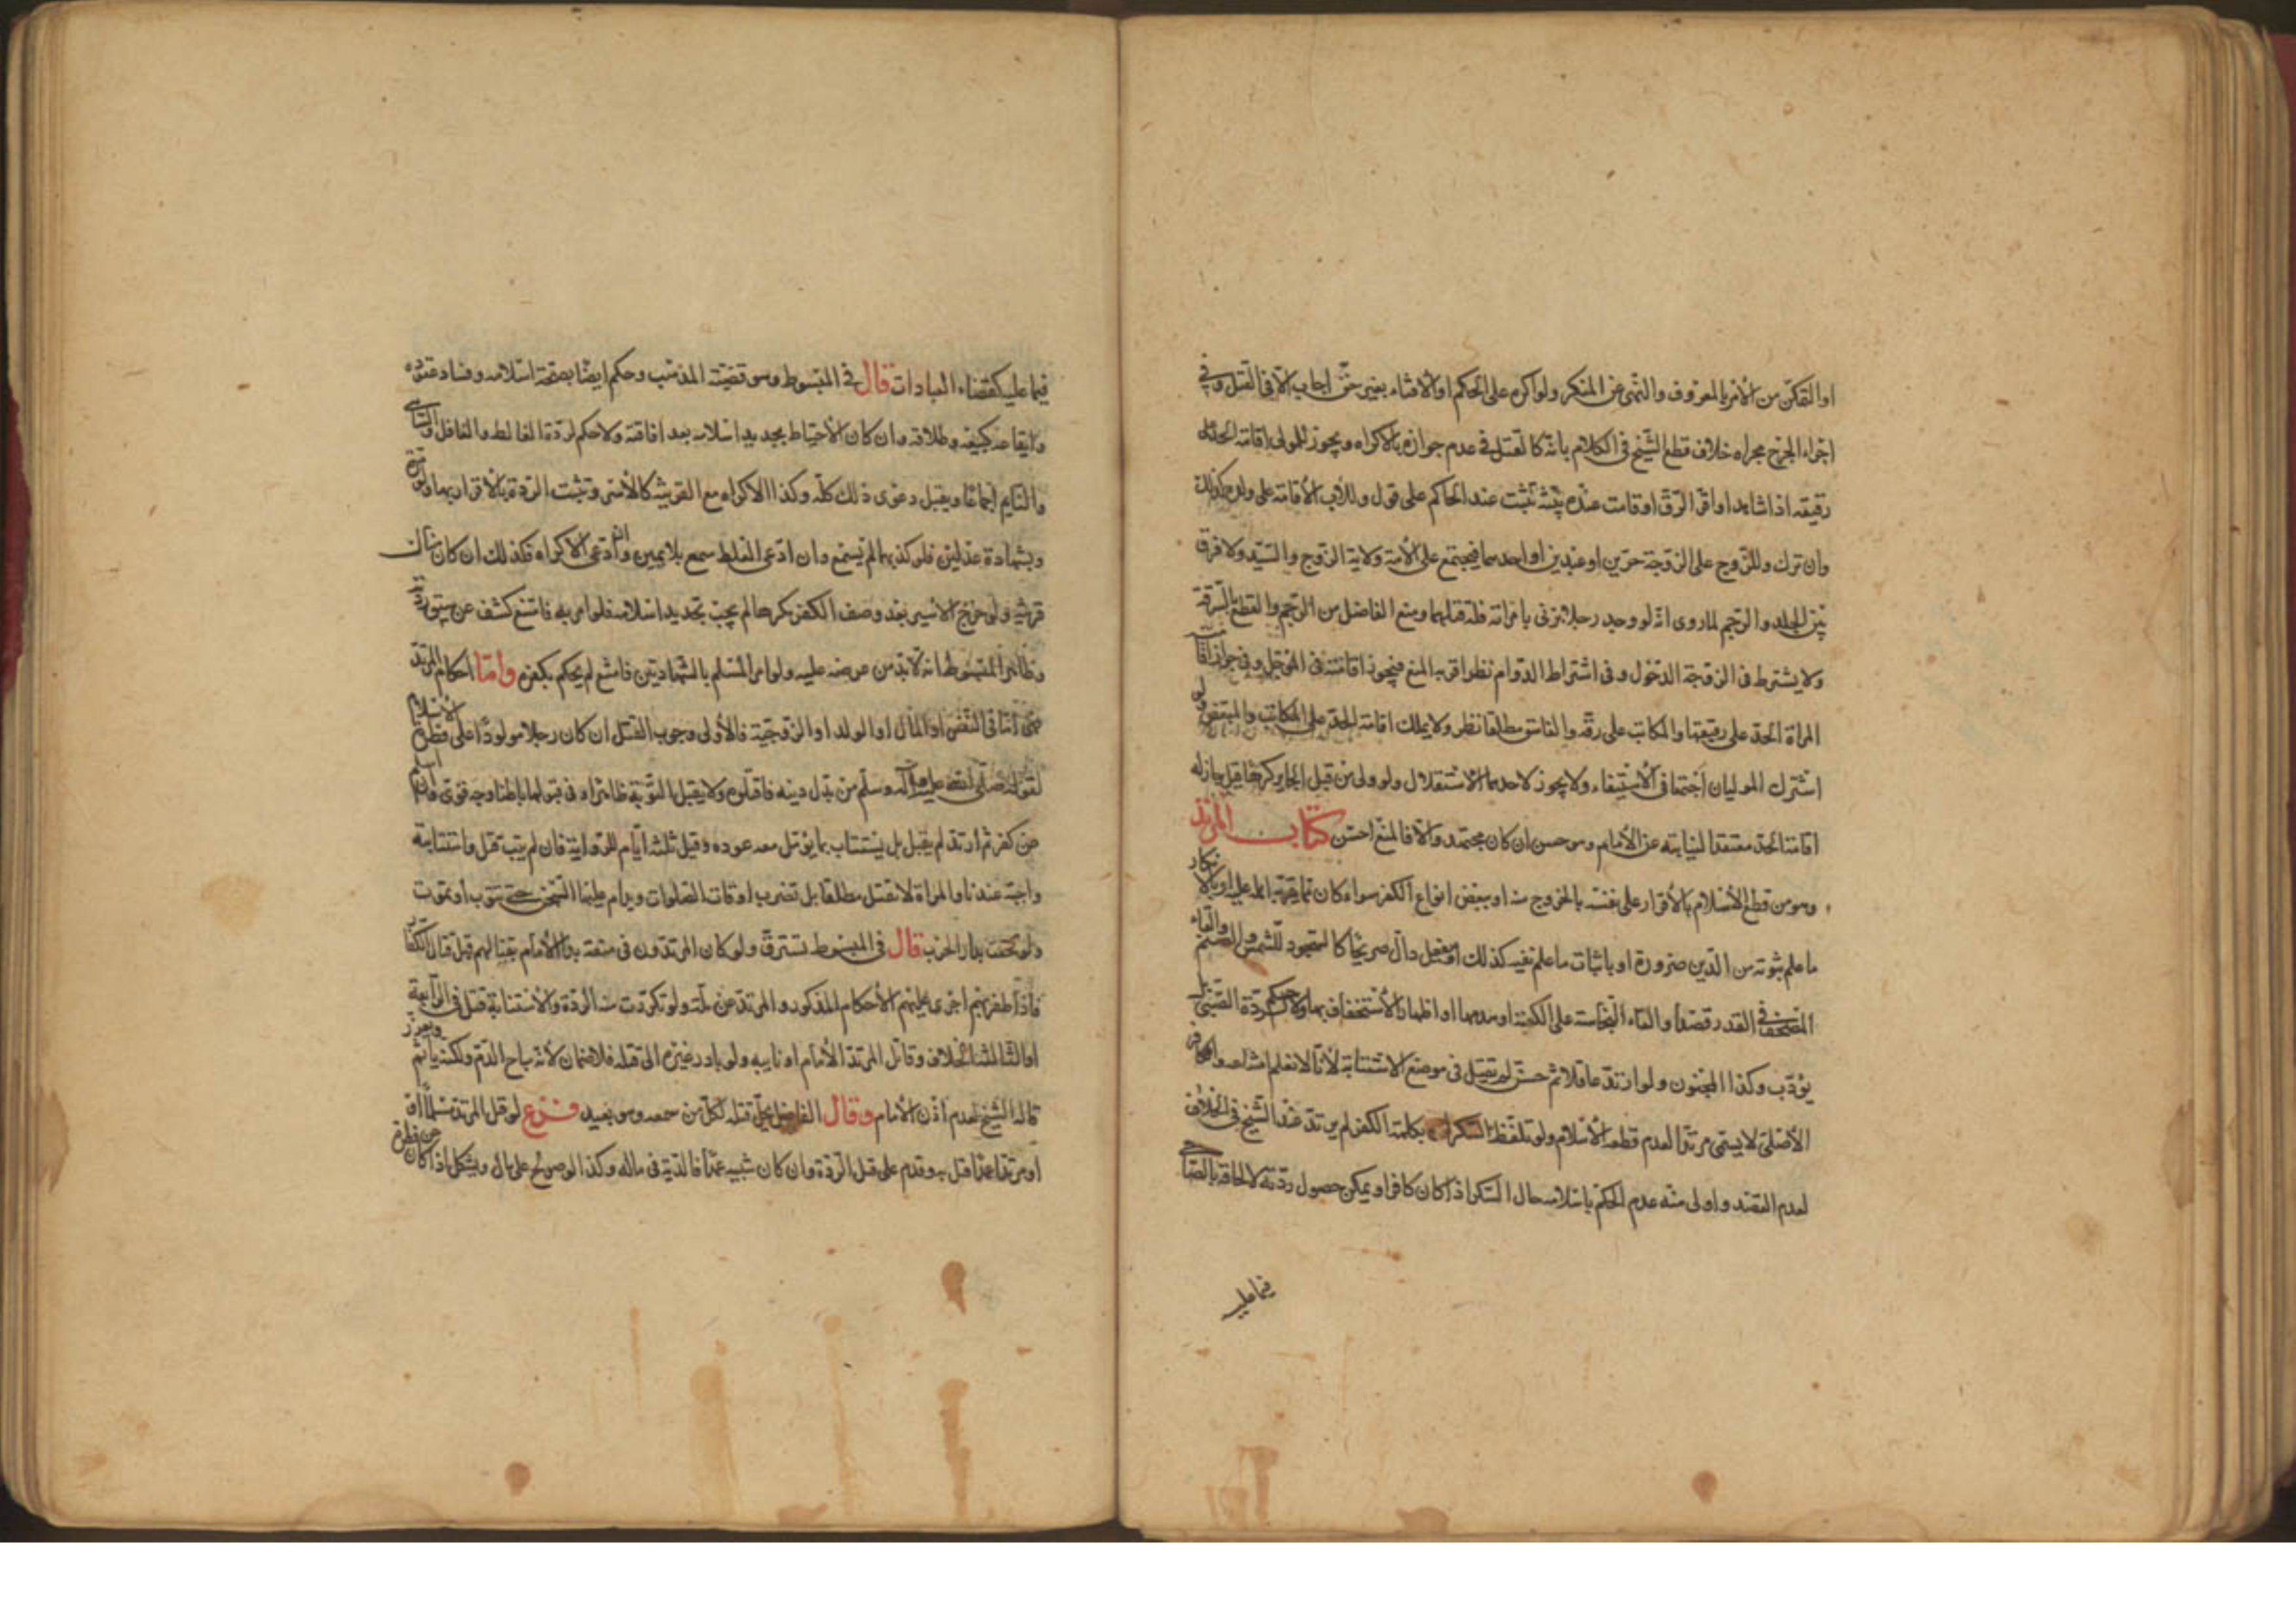 او التمكن من الأمر بالمعروف والنهي عن المنكر ولو اكره على الحكم او الافتاء بغير حق اجاب الا في القتل وفي
اجراء الجرح مجراه خلاف قطع الشيخ في الكلام بانه كالقتل في عدم جوازه بالاكراه ويجوز للمولى اقامة الحد على
رقيقه اذا شاهد او اقر الرق او قامت عنده بينة تثبت عند الحاكم على قول وللاب الاقامة على ولده كذلك
وان ترك وللزوج على الزوجة حرين او عبدين او احدهما فيجتمع على الأمة ولاية الزوج والسيد ولا فرق
بين الجلد والرجم لما روي انه لو وجد رجلا يزني بامراته فله قتلهما ومنع الفاضل من الرجم والقطع بالسرقة
ولا يشترط في الزوجة الدخول وفي اشتراط الدوام نظر اقربه المنع فيجوز اقامته في المؤجل وفي جواز اقامة
المراة الحد على رقيقها والمكاتب على رقه والفاسق مطلقا نظر ولا يملك اقامة الحد على المكاتب والمبعض ولو
اشترك الموليان اجتمعا في الاستيفاء ولا يجوز لاحدهما الاستقلال ولو ولى من قبل الجاير كرها قيل جاز له
اقامة الحد معتقدا لنيابته عن الأمام وهو حسن ان كان مجتهدا والا فالمنع احسن كتاب المرتد
وهو من قطع الاسلام بالأقرار على نفسه بالخروج منه او ببعض انواع الكفر سواء كان مما يقر اهله عليه او لا او بانكار
ما علم ثبوته من الدين ضرورة او باثبات ما علم نفيه كذلك او بفعل دال صريحا كالسجود للشمس والصنم والقاء
المصحف في القذر قصدا والقاء النجاسة على الكعبة او هدمها او اظهار الأستخفاف بها ولا حكم لردة الصبي بل
يؤدب وكذا المجنون ولو ارتد عاقلا ثم جن لم يقتل في موضع الاستتابة لأنا لا نعلم امتناعه والكافر
الأصلي لا يسمى مرتدا لعدم قطعه الأسلام ولو تلفظ السكران بكلمة الكفر لم يرتد عند الشيخ في الخلاف
لعدم القصد واولى منه عدم الحكم باسلامه حال السكر اذا كان كافرا ويمكن حصول ردته لالحاقه بالصاحي
فيما عليه
فيما عليه كقضاء العبادات قال في المبسوط وهو قضية المذهب وحكم ايضا بصحة اسلامه وفساد عقوده
وايقاعه كبيعه وطلاقه وان كان الأحتياط تجديد اسلامه بعد افاقته ولا حكم لردة الغالط والغافل والساهي
والنايم اجماعا ويقبل دعوى ذلك كله وكذا الاكراه مع القرينة كالأسر وتثبت الردة بالأقرار بها ولو مرة
وبشهادة عدلين فلو كذبهما لم يسمع وان ادعى الغلط سمع بلا يمين وان ادعى الاكراه فكذلك ان كان هناك
قرينة ولو خرج الأسير بعد وصف الكفر مكرها لم يجب تجديد اسلامه فلو امر به فامتنع كشف عن سبق ردته
وظاهر المبسوط انه لا بد من عرضه عليه ولو امر المسلم بالشهادتين فامتنع لم يحكم بكفره واما احكام المرتد
فهي اما في النفس او المال او الولد او الزوجية فالأولى وجوب القتل ان كان رجلا مولودا على فطرة الأسلام
لقوله صلى الله عليه وآله وسلم من بدل دينه فاقتلوه ولا يقبل التوبة ظاهرا وفي قبولها باطنا وجه قوي وان اسلم
عن كفر ثم ارتد لم يقتل بل يستتاب بما يؤمل معه عوده وقيل ثلثه ايام للرواية فان لم يتب قتل واستتابته
واجبة عندنا والمراة لا تقتل مطلقا بل تضرب اوقات الصلوات ويدام عليها السجن حتى تتوب او تموت
ولو لحقت بدار الحرب قال في المبسوط تسترق ولو كان المرتدون في منعة بدا الأمام بقتالهم قبل قتال الكفار
فاذا ظفر بهم اجرى عليهم الأحكام المذكور والمرتد عن ملة ولو تكررت منه الردة والأستتابة قتل في الرابعة
او الثالثة الخلاف وقاتل المرتد الأمام او نايبه ولو بادر غيره الى قتله فلا ضمان لأنه مباح الدم ولكنه يأثم ويعزر
قاله الشيخ لعدم اذن الأمام وقال الفاضل يحل قتله لكل من سمعه وهو بعيد فرع لو قتل المرتد مسلما او
او مرتدا عمدا قتل به وقدم على قتل الردة وان كان شبيه عمدا فالدية في ماله وكذا لو صولح على مال ويشكل اذا كان عن فطرة